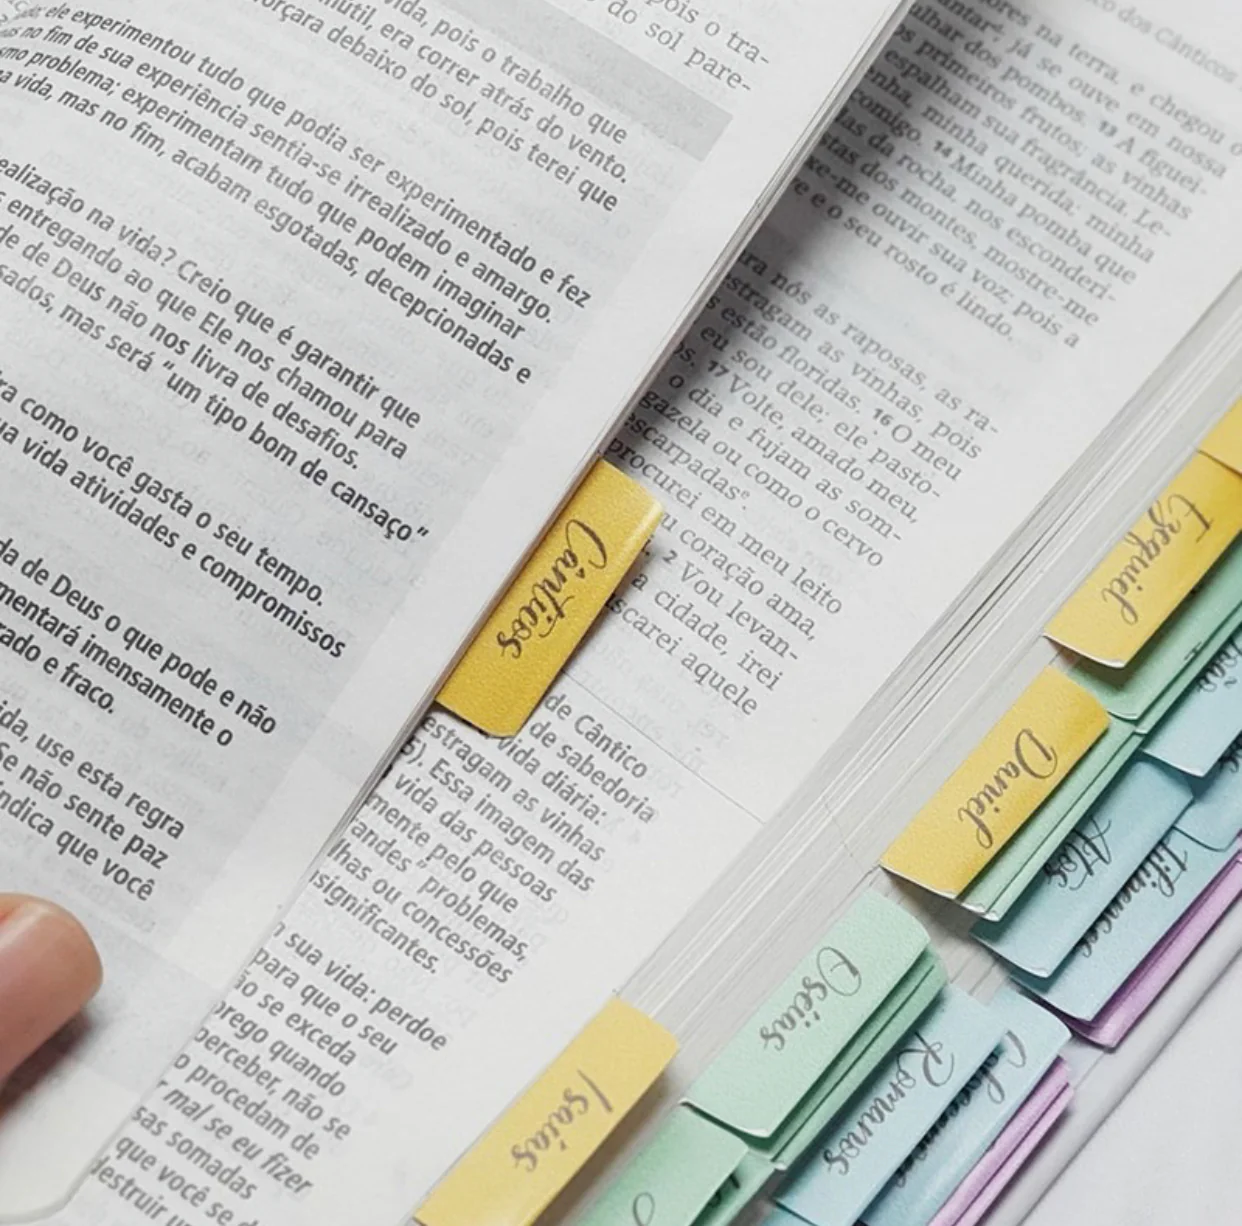 vida, pois o trabalho que
inútil, era correr atrás do vento.
forçara debaixo do sol, pois terei que
ele experimentou tudo que podia ser experimentado e fez
no fim de sua experiência sentia-se irrealizado e amargo.
problema; experimentam tudo que podem imaginar
vida, mas no fim, acabam esgotadas, decepcionadas e
ealização na vida? Creio que é garantir que
entregando ao que Ele nos chamou para
de de Deus não nos livra de desafios.
sados, mas será “um tipo bom de cansaço”
ra como você gasta o seu tempo.
ua vida atividades e compromissos
da de Deus o que pode e não
mentará imensamente o
rado e fraco.
ida, use esta regra
Se não sente paz
ndica que você
pois o tra-
do sol pare-
Cânticos
dos Cânticos
ores na terra, e chegou o
já se ouve em nossa
dos pombos. 13 A figuei-
os primeiros frutos; as vinhas
espalham sua fragrância. Le-
enha, minha querida; minha
comigo. 14 Minha pomba que
das da rocha, nos esconderi-
stas dos montes, mostre-me
xe-me ouvir sua voz; pois a
e e o seu rosto é lindo.
ra nós as raposas, as ra-
stragam as vinhas, pois
estão floridas. 16 O meu
eu sou dele; ele pasto-
os. 17 Volte, amado meu,
o dia e fujam as som-
gazela ou como o cervo
escarpadas e
procurei em meu leito
u coração ama,
2 Vou levan-
a cidade, irei
scarei aquele
de Cântico
de sabedoria
vida diária:
estragam as vinhas
5). Essa imagem das
vida das pessoas
mente pelo que
andes” problemas,
lhas ou concessões
nsignificantes.
sua vida: perdoe
para que o seu
ão se exceda
prego quando
perceber, não se
o procedam de
mal se eu fizer
sas somadas
que você se d
destruir
Ezequiel
Daniel
Atos
Filipenses
Oséias
Romanos
Isaías